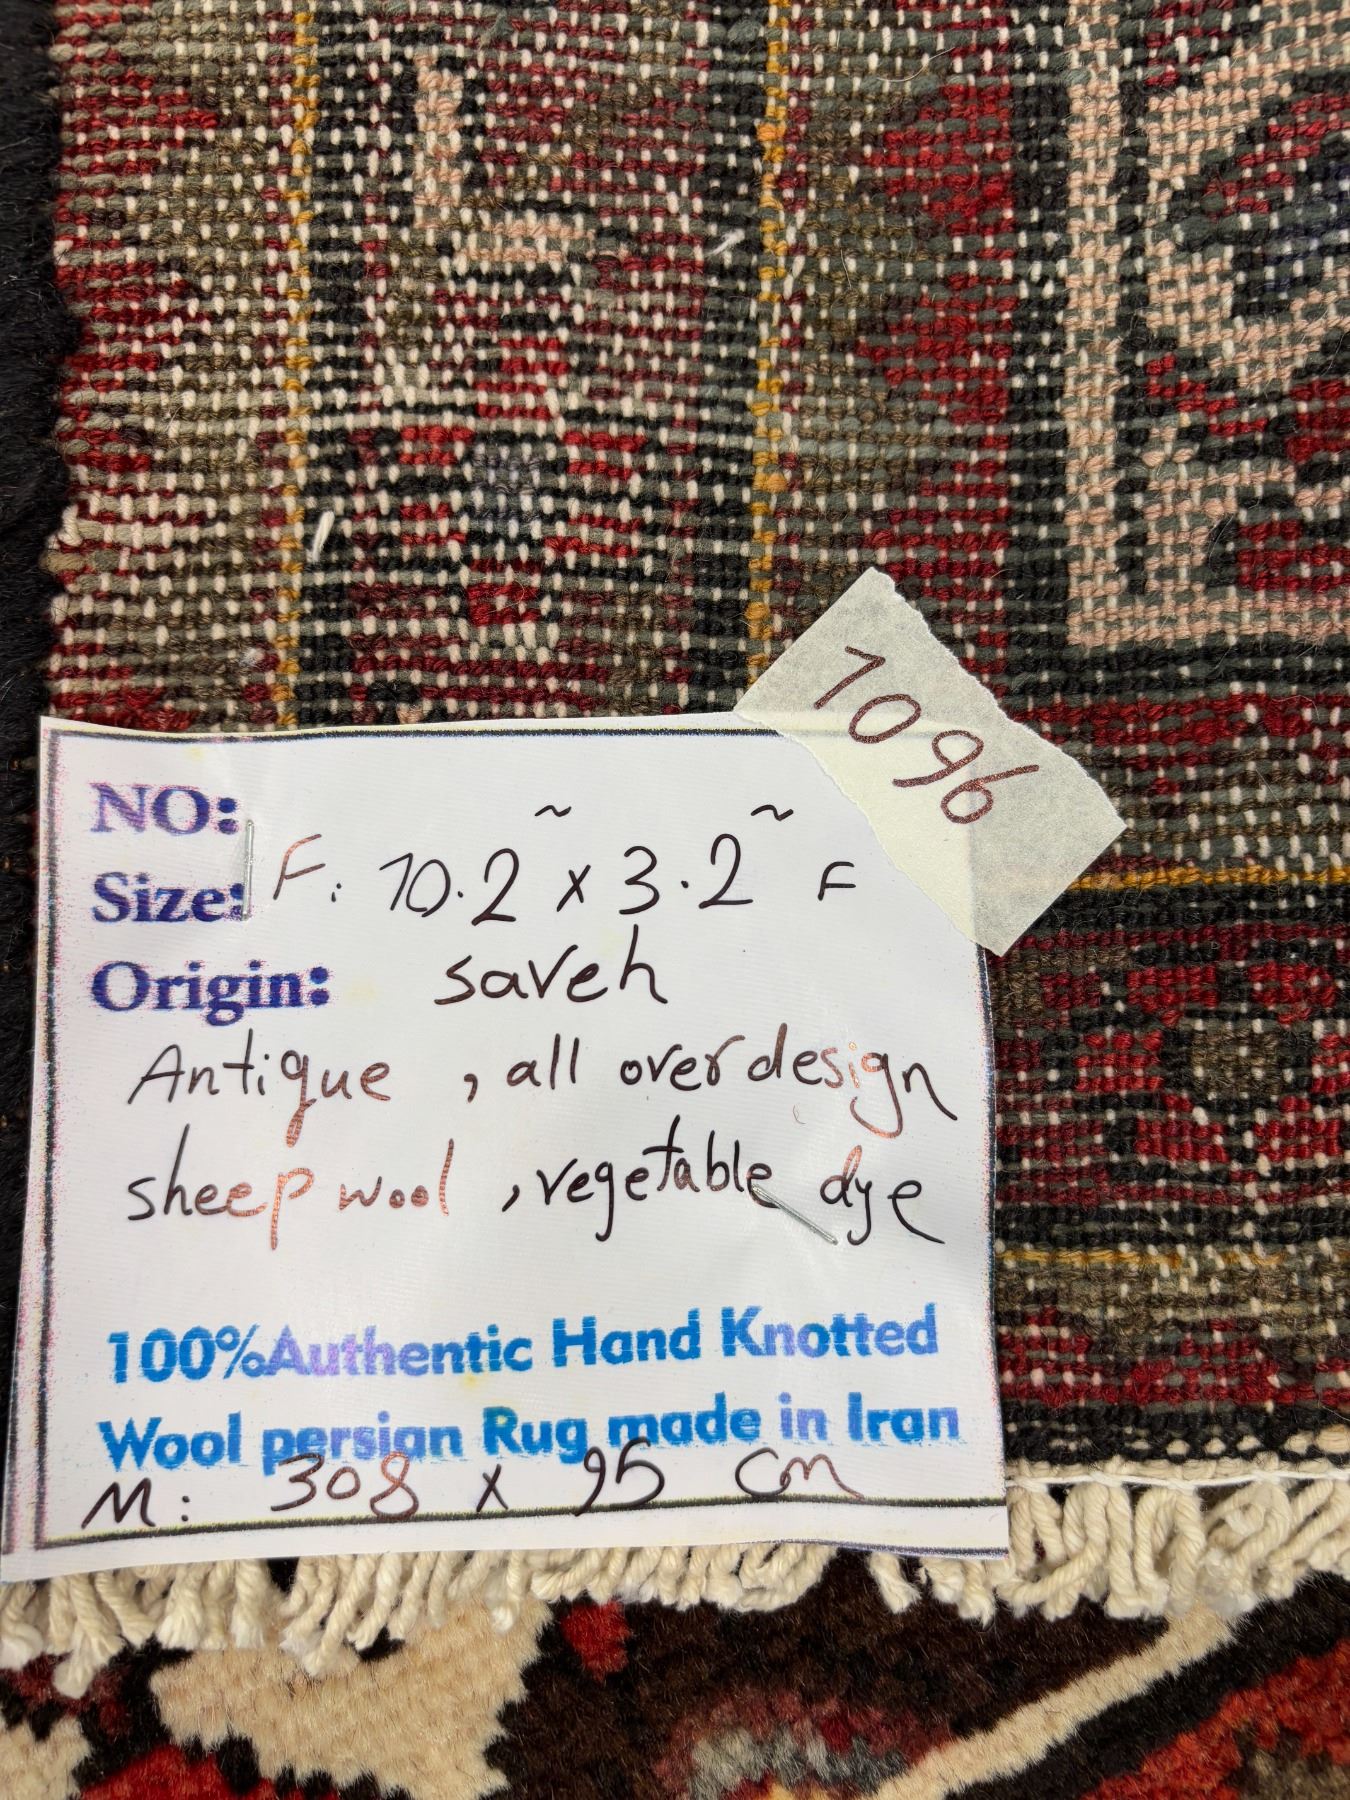 1096
NO:
Size: F: 10.2~ x 3.2~ F
Origin: saveh
Antique , all over design
sheep wool , vegetable dye
100%Authentic Hand Knotted
Wool persian Rug made in Iran
M: 308 x 95 cm